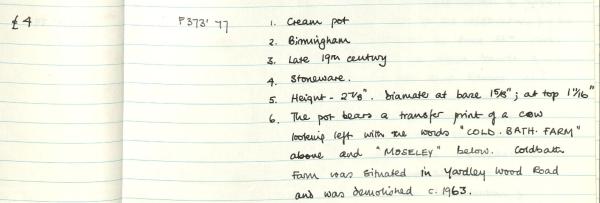 £4
F373' 77
1. Cream pot
2. Birmingham
3. Late 19th century
4. Stoneware.
5. Height - 2 7/8". Diameter at base 1 5/8"; at top 1 11/16"
6. The pot bears a transfer print of a cow
looking left with the words "COLD. BATH. FARM"
above and "MOSELEY" below. Coldbath
Farm was situated in Yardley Wood Road
and was demolished c. 1963.